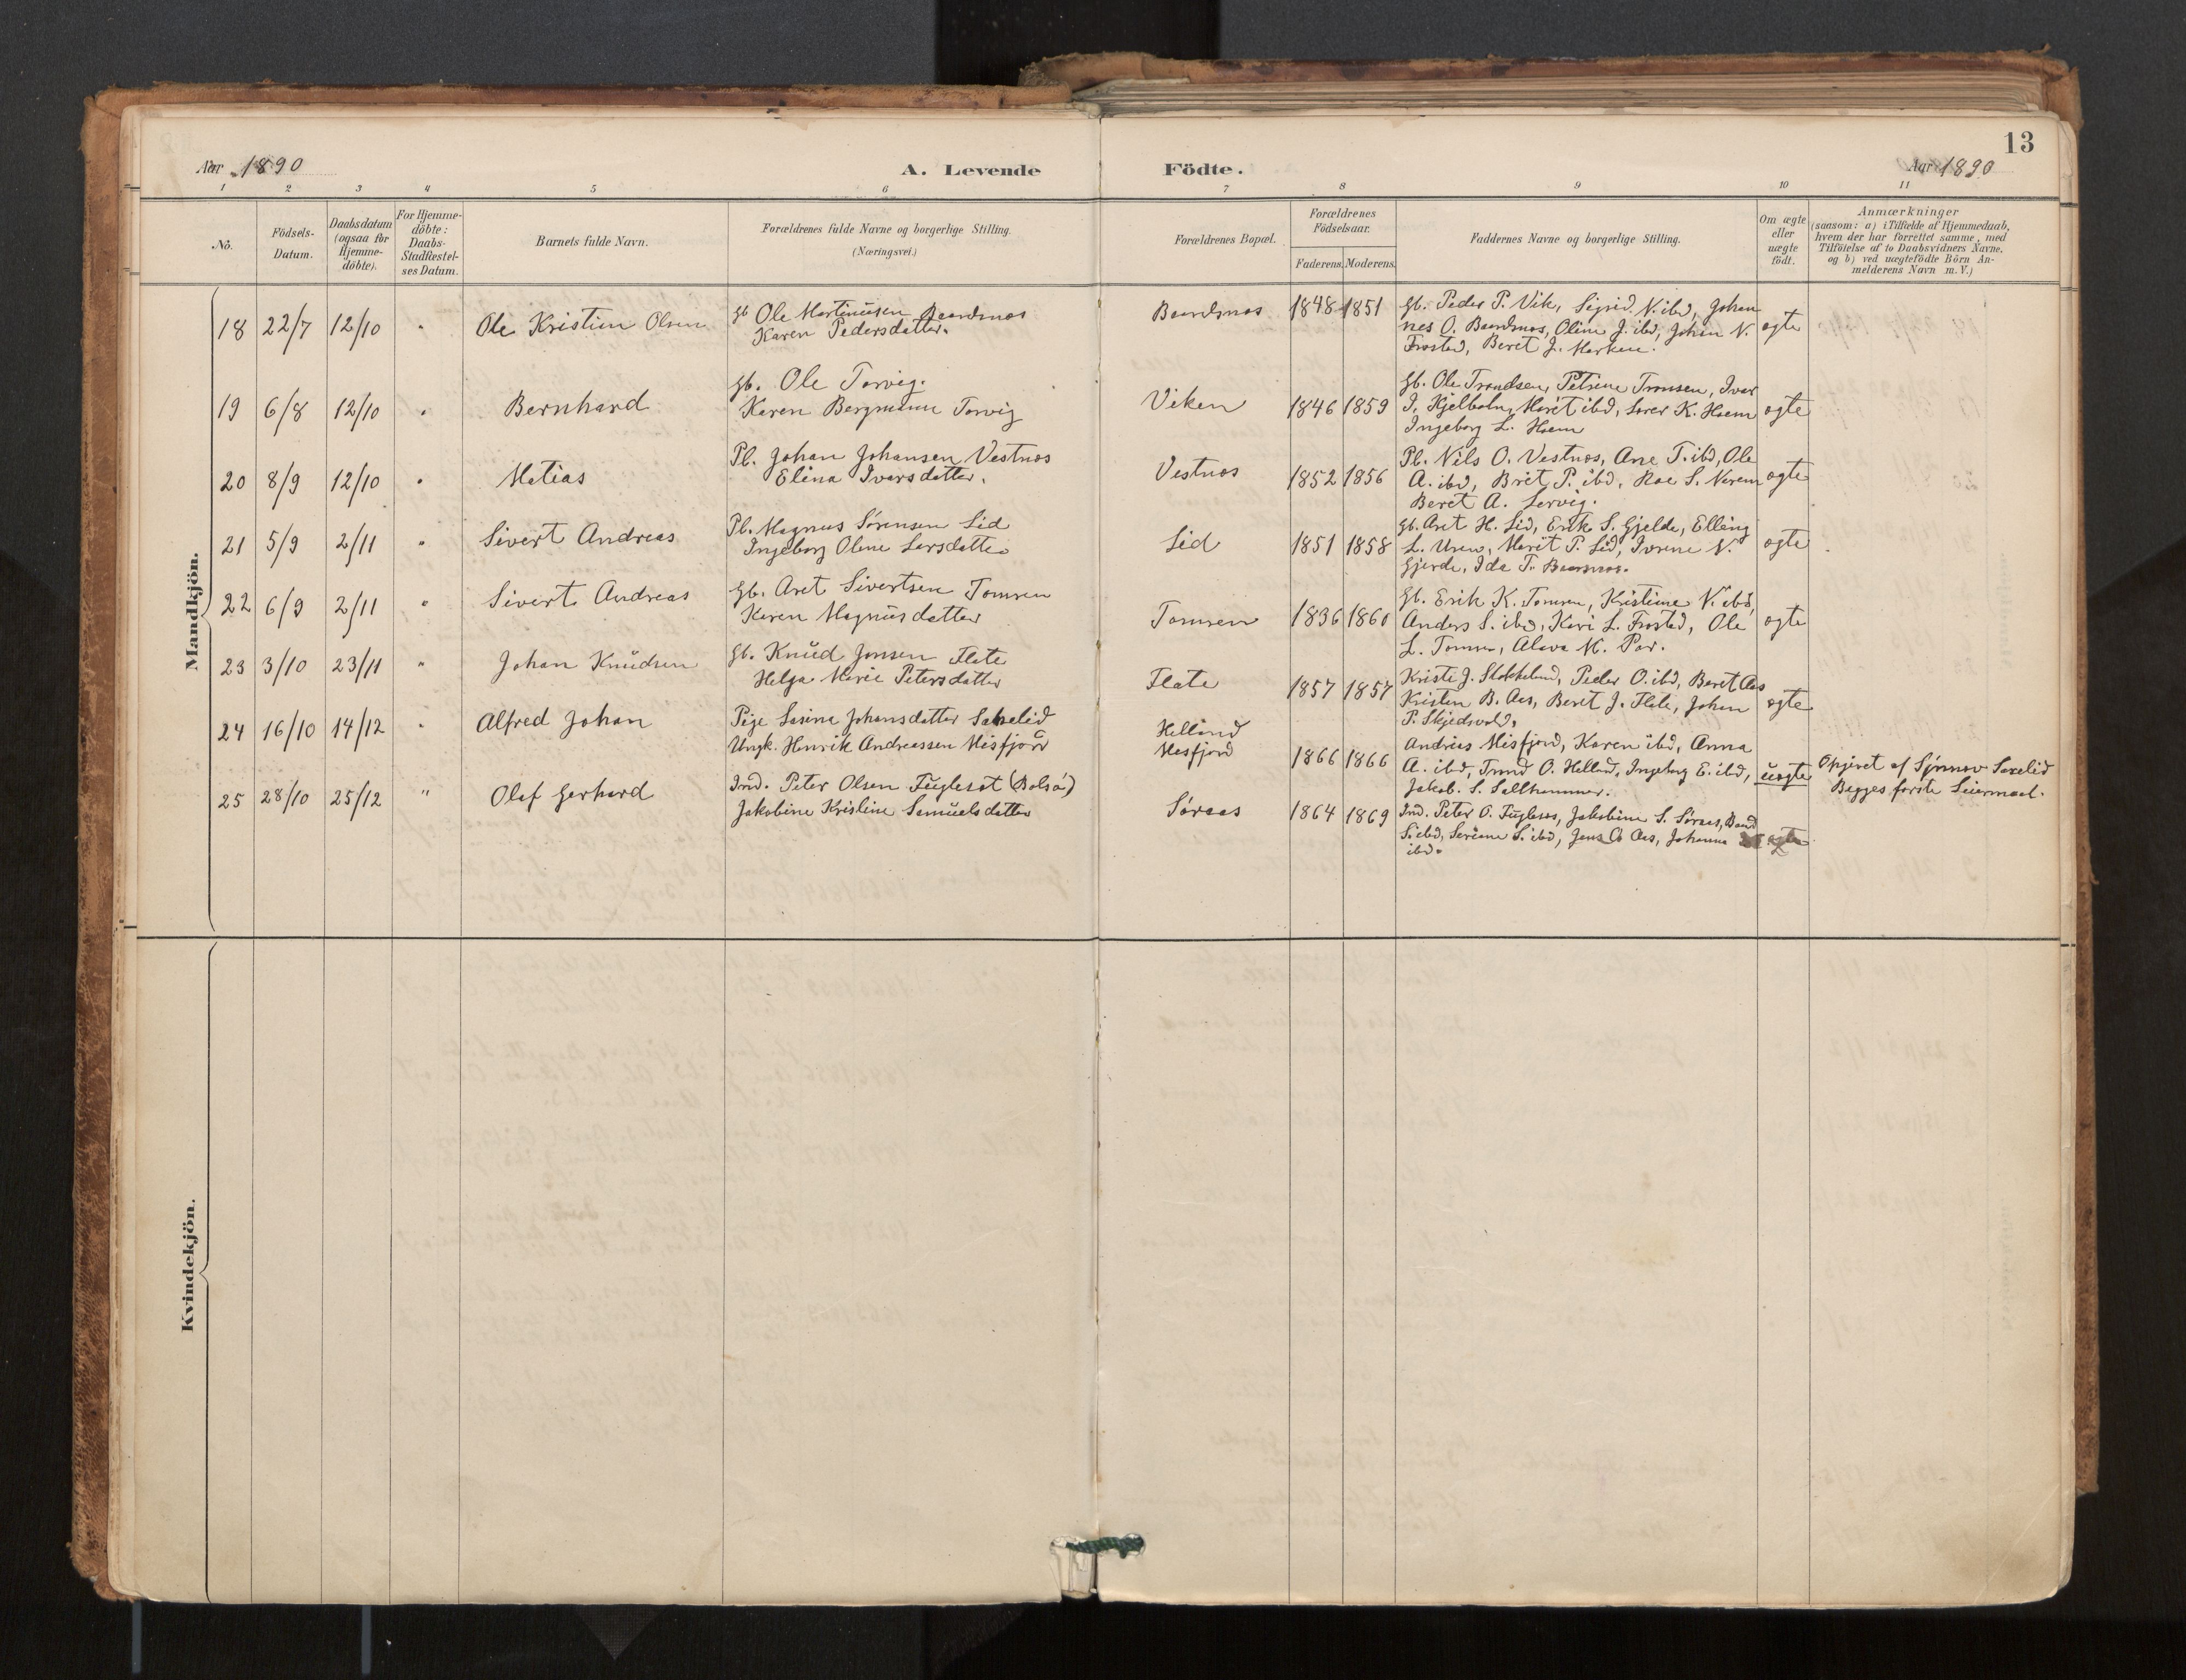 13
Aar 1890
A. Levende Födte.
Aar 1890
1 2 3 4 5 6 7 8 9 10 11
No.
Födsels-Datum.
Daabsdatum (ogsaa for Hjemme-döbte).
For Hjemme-döbte: Daabs-Stadfæstel-ses Datum.
Barnets fulde Navn.
Forældrenes fulde Navne og borgerlige Stilling.
(Næringsvei.)
Forældrenes Bopæl.
Forældrenes Födselsaar.
Faderens. Moderens.
Faddernes Navne og borgerlige Stilling.
Om ægte eller uægte födt.
Anmærkninger
(saasom: a) i Tilfælde af Hjemmedaab,
hvem der har forrettet samme, med
Tilföielse af to Daabsvidners Navne,
og b) ved uægtefödte Börn An-
melderens Navn m.V.)
Mandkjön.
18 22/7 12/10 " Ole Kristian Olsen
Gb Ole Martinusen Baardsnæs
Karen Pedersdatter.
Baardsnæs 1848 1851
Gb. Peder P. Vik, Sigrid N. ibd, Johan
nes O. Baardsnæs, Oline J. ibd, Johan N.
Frostad, Beret J.
ægte
19 6/8 12/10 " Bernhard
Gb. Ole Torvig.
Karen Bergmann Torvig
Viken 1846 1859
Gb. Ole Trondsen, Petrine Tronsen, Ivar
I. Kjelbotn, Marit ibd, Lars K. Hoem
Ingeborg L. Hoem
ægte
20 8/9 12/10 " Matias
Pl. Johan Johansen Vestnæs
Elina Ivarsdatter.
Vestnæs 1852 1856
Pl. Nils O. Vestnæs, Ane T. ibd, Ole
A. ibd, Brit P. ibd, Roe S. Nerem
Beret A.
ægte
21 5/9 2/11 " Sivert Andreas
Pl. Magnus Sørensen Lid
Ingeborg Oline Larsdatter
Lid 1851 1858
Gb. Aret H. Lid, Erik S. Gjelde, Elling
L. Marit P. Lid, N.
Gjerde, Ida T.
ægte
22 6/9 2/11 " Sivert Andreas
Gb. Aret Sivertsen Tomren
Karen Magnusdatter
Tomren 1836 1860
Gb. Erik K. Tomren, Kristine N. ibd,
Anders S. ibd, Kari L. Frostad, Ole
L. Tomren, M.
ægte
23 3/10 23/11 " Johan Knudsen
Gb. Knud Jonsen Flate
Helga Marie Petersdatter
Flate 1857 1857
J. Stokkeland, Peder O. ibd, Beret Aas
Kristen B. Aas, Beret J. Flate, Johan
P. Skjedsvold.
ægte
24 16/10 14/12 " Alfred Johan
Pige Sasine Johansdatter Saxelid
Ungk. Henrik Andreassen Misfjord
Helland
Misfjord
1866 1866
Andreas Misfjord, Karen ibd, Anna
A. ibd, Trond O. Helland, Ingeborg E. ibd,
Jakob. S. Salthammer.
uægte
Opgivet af Synnøv Saxelid
Begges første Leiermaal.
25 28/10 25/12 " Olaf Gerhard
Ind. Peter Olsen Fuglesøt (Bolsø)
Jakobine Kristine Samuelsdatter
Søraas 1864 1869
Ind. Peter O. Jakobine S. Søraas,
S. ibd, S. ibd, Jens O Aas, Johanna
ibd.
ægte
Kvindekjön.